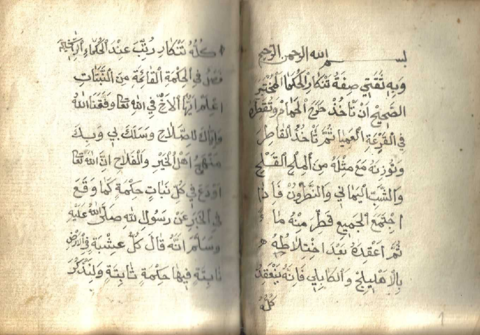 بسم الله الرحمن الرحيم
وبه ثقتي صفة تنكار الحكما المختبر
الصحيح ان تأخذ
في القرعة العميا ثم تأخذ القاطر
وتوزنه مع مثله من الملح القلي
والشب اليماني والنطرون فاذا
اجتمع الجميع قطر منه ما
ثم اعقده بعد اختلاطه
بالاهليلج والكابلي فانه ينعقد
كله
كله تنكار عند الحكماء
فصل في الحكمة القائمة من النبات
اعلم ايها الاخ في الله تعا وفقنا الله
واياك لاصلاح وسلك بي وبك
منهج اهل الخير والفلاح ان الله تعا
اودع في كل نبات حكمة كما وقع
في الخبر عن رسول الله صلى الله عليه
وسلم انه قال كل عشبة في الارض
نابتة فيها حكمة ثابتة ولنذكر